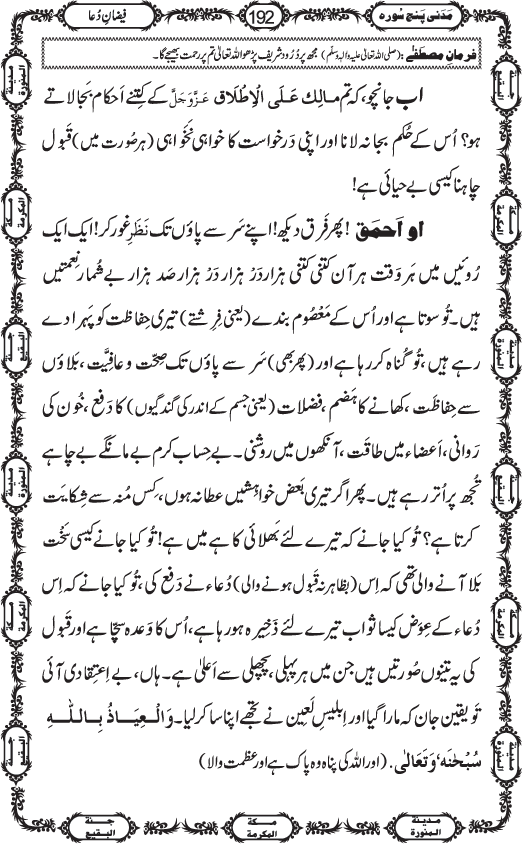 مَدَنی پنج سورہ
192
فیضانِ دُعا
فرمانِ مصطَفٰے :(صلی اللہ تعالیٰ علیہ واٰلہٖ وسلّم) مجھ پر دُرُود شریف پڑھو اللہ تعالیٰ تم پر رحمت بھیجے گا۔
اب جانچو، کہ تم مالِک عَلَی الْاِطْلَاق عَزَّوَجَلَّ کے کِتنے اَحکام بَجا لاتے
ہو؟ اُس کے حُکم بجا نہ لانا اور اپنی دَرخواست کا خواہی نخَواہی (ہرصورت میں) قَبول
چاہنا کیسی بے حیائی ہے!
او اَحمَق !پھر فَرق دیکھ! اپنے سَر سے پاؤں تک نَظَرِ غور کر! ایک ایک
رُوئیں میں ہَر وَقت ہر آن کِتنی کِتنی ہزار دَرْ ہزار دَرْ ہزار صَد ہزار بے شُمار نِعمتیں
ہیں۔ تُو سوتا ہے اور اُس کے مَعْصُوم بندے (یعنی فِرِشتے) تیری حِفاظت کو پَہرا دے
رہے ہیں، تُو گُناہ کر رہا ہے اور (پھر بھی) سَر سے پاؤں تک صِحّت و عافِیَت، بَلاؤں
سے حِفاظت، کھانے کا ہَضم، فضلات (یعنی جسم کے اندر کی گندگیوں) کا دَفع، خُون کی
رَوانی، اَعضاء میں طاقت، آنکھوں میں روشنی۔ بے حِساب کرم بے مانگے بے چاہے
تُجھ پر اُتر رہے ہیں۔ پھر اگر تیری بَعض خواہِشیں عطا نہ ہوں، کِس مُنہ سے شِکایَت
کرتا ہے؟ تُو کیا جانے کہ تیرے لئے بَھلائی کا ہے میں ہے! تُو کیا جانے کیسی سَخْت
بَلا آنے والی تھی کہ اِس (بظاہر نہ قَبول ہونے والی) دُعاء نے دَفع کی، تُو کیا جانے کہ اِس
دُعاء کے عِوَض کیسا ثواب تیرے لئے ذَخیرہ ہو رہا ہے، اُس کا وَعدہ سچّا ہے اور قَبول
کی یہ تینوں صُورَتیں ہیں جن میں ہر پہلی، پچھلی سے اَعلیٰ ہے۔ ہاں، بے اِعتِقادی آئی
تو یقین جان کہ مارا گیا اور اِبلیسِ لَعین نے تجھے اپنا سا کر لیا۔ وَالْعِیَاذُ بِاللّٰہِ
سُبْحٰنَہٗ وَتَعَالٰی. (اور اللہ کی پناہ وہ پاک ہے اور عظمت والا)
مدینۃ المنورۃ
جنۃ البقیع
مکۃ المکرمۃ
مکۃ المکرمۃ
جنۃ البقیع
مدینۃ المنورۃ
مدینۃ المنورۃ
جنۃ البقیع
مکۃ المکرمۃ
مکۃ المکرمۃ
جنۃ البقیع
مدینۃ المنورۃ
جنۃ البقیع
مکۃ المکرمۃ
مدینۃ المنورۃ